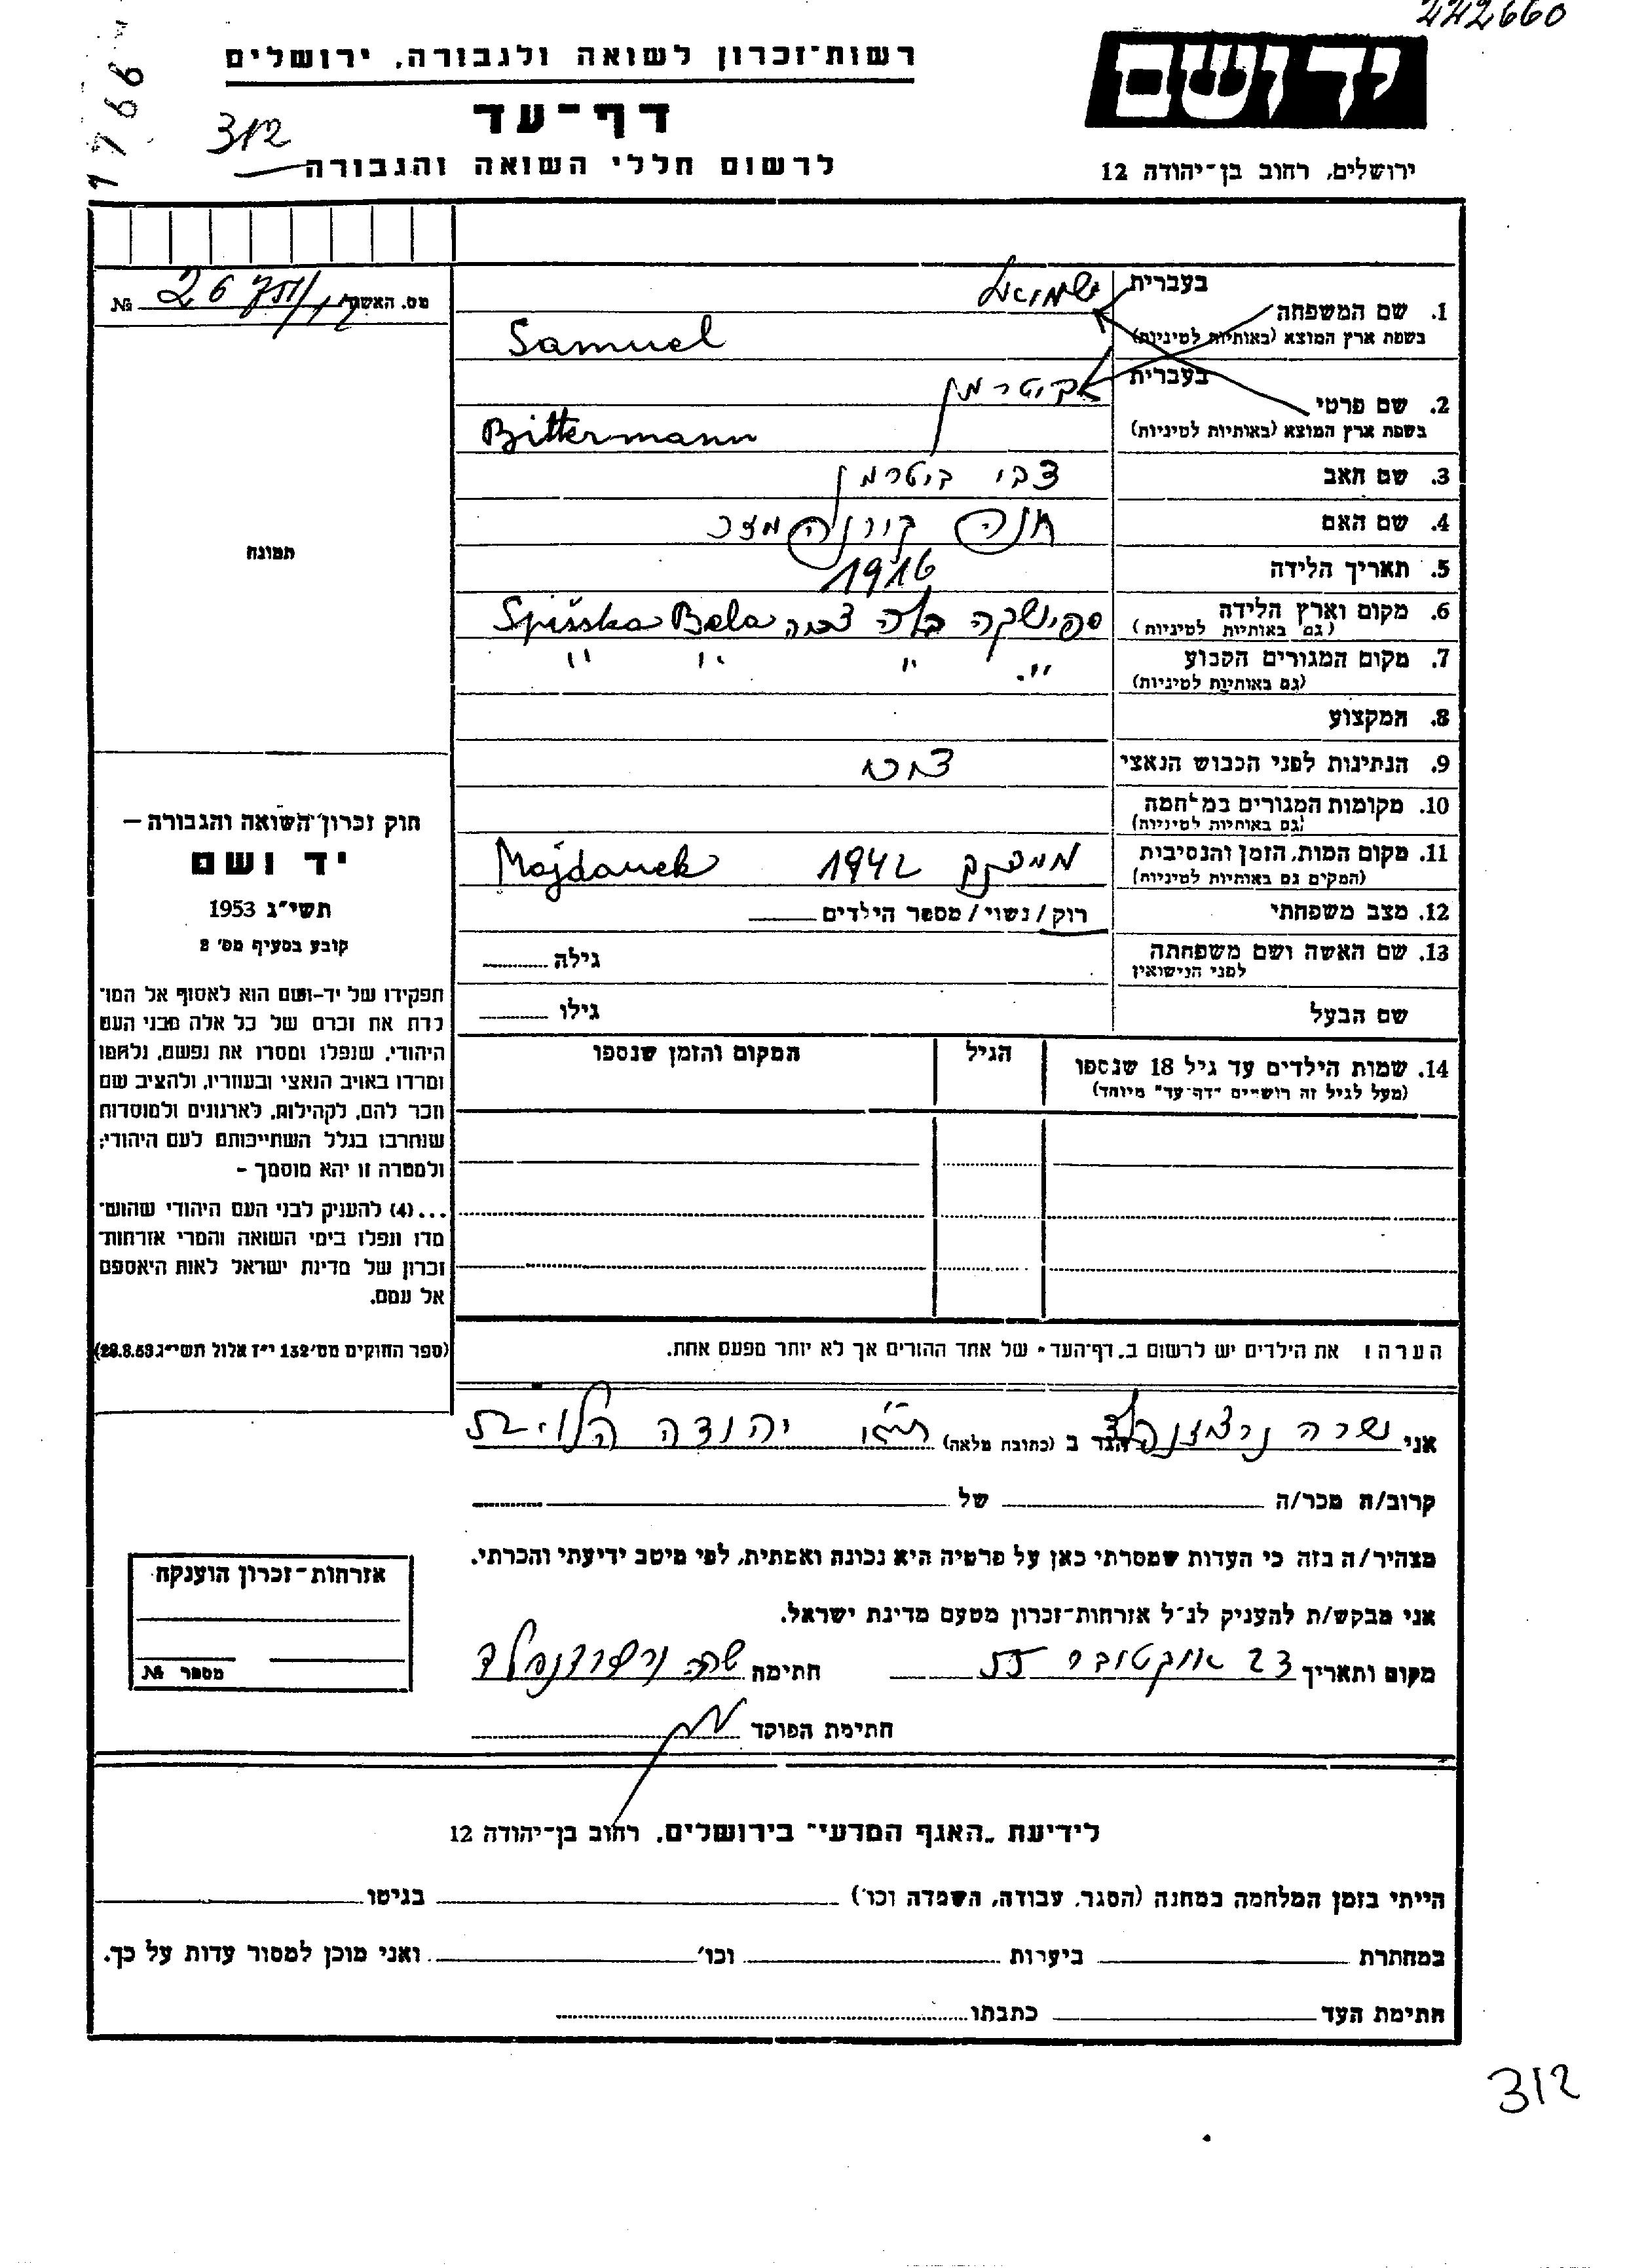 222660
1766
רשות-זכרון לשואה ולגבורה, ירושלים
ידושם
דף-עד
312
לרשום חללי השואה והגבורה
ירושלים, רחוב בן-יהודה 12
מס. האשה № 26
1. שם המשפחה בעברית שמואל
בשפת ארץ המוצא (באותיות לטיניות) Samuel
2. שם פרטי בעברית ביטרמן
בשפת ארץ המוצא (באותיות לטיניות) Bittermann
3. שם האב צבי ביטרמן
4. שם האם חנה
5. תאריך הלידה 1916
6. מקום וארץ הלידה ספישקה בלה Spišska Bela
(גם באותיות לטיניות)
7. מקום המגורים הקבוע " " " "
(גם באותיות לטיניות)
8. המקצוע
9. הנתינות לפני הכבוש הנאצי
10. מקומות המגורים במלחמה
(גם באותיות לטיניות)
11. מקום המות, הזמן והנסיבות 1942 Majdanek
(המקום גם באותיות לטיניות)
12. מצב משפחתי רוק/נשוי/מספר הילדים
13. שם האשה ושם משפחתה גילה
לפני הנישואין
שם הבעל גילו
14. שמות הילדים עד גיל 18 שנספו הגיל המקום והזמן שנספו
(מעל לגיל זה רושמים "דף-עד" מיוחד)
הערה: את הילדים יש לרשום ב"דף-העד" של אחד ההורים אך לא יותר מפעם אחת.
תמונה
חוק זכרון השואה והגבורה –
יד ושם
תשי"ג 1953
קובע בסעיף מס' 2
תפקידו של יד-ושם הוא לאסוף אל המו-
לדת את זכרם של כל אלה מבני העם
היהודי, שנפלו ומסרו את נפשם, נלחמו
ומרדו באויב הנאצי ובעוזריו, ולהציב שם
וזכר להם, לקהילות, לארגונים ולמוסדות
שנחרבו בגלל השתייכותם לעם היהודי;
ולמטרה זו יהא מוסמך –
...(4) להעניק לבני העם היהודי שהוש-
מדו ונפלו בימי השואה והמרי אזרחות-
זכרון של מדינת ישראל לאות היאספם
אל עמם.
(ספר החוקים מס' 132 י"ז אלול תשי"ג 28.8.53)
אני שרה הגר ב (כתובת מלאה) יהודה הלוי
קרוב/ה מכר/ה של
מצהיר/ה בזה כי העדות שמסרתי כאן על פרטיה היא נכונה ואמתית, לפי מיטב ידיעתי והכרתי.
אני מבקש/ת להעניק לנ"ל אזרחות-זכרון מטעם מדינת ישראל.
מקום ותאריך 23 אוקטובר 55 חתימה שרה
חתימת הפוקד
אזרחות-זכרון הוענקה
מספר №
לידיעת "האגף המדעי" בירושלים, רחוב בן-יהודה 12
הייתי בזמן המלחמה במחנה (הסגר, עבודה, השמדה וכו') בגיטו
במחתרת ביערות וכו' ואני מוכן למסור עדות על כך.
חתימת העד כתבתו
312